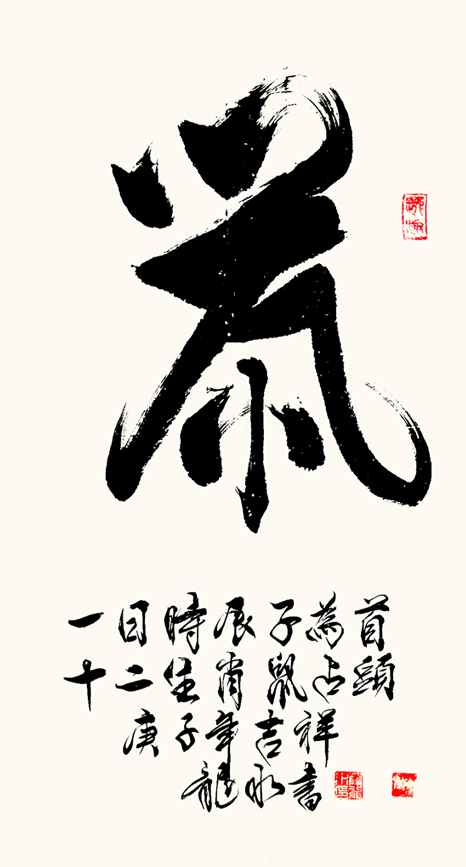 鼠
一日時辰子為首
十二生肖鼠占頭
庚子年吉祥
龍永書